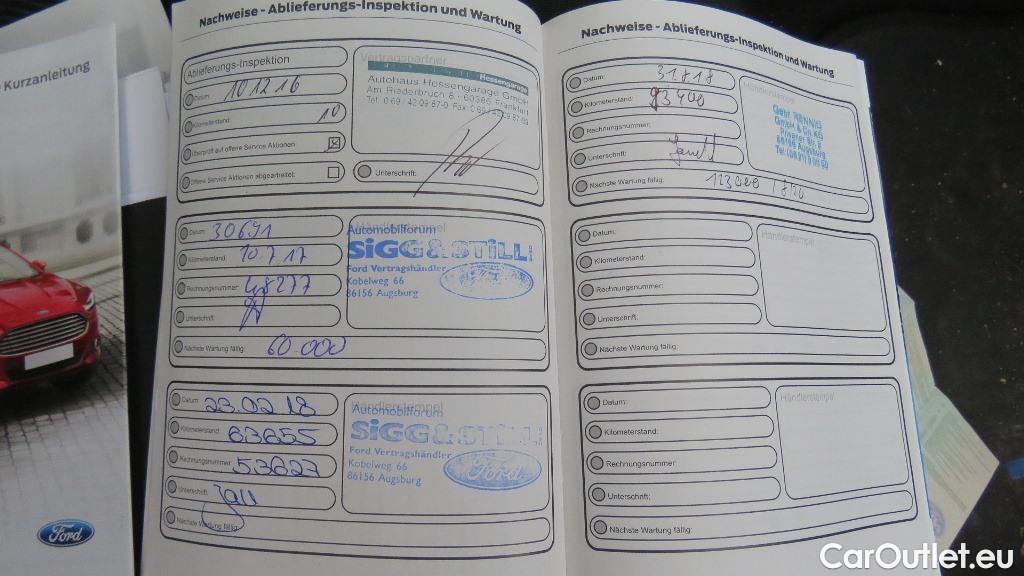 Kurzanleitung
Ford
Nachweise - Ablieferungs-Inspektion und Wartung
Ablieferungs-Inspektion
Datum: 10 12 16
Kilometerstand: 10
Überprüft auf offene Service Aktionen:
Offene Service Aktionen abgearbeitet:
Vertragspartner
Hessengarage
Autohaus Hessengarage GmbH
Am Riederbruch 8 · 60386 Frankfurt
Tel. 0 69 / 42 09 87-0 Fax 0 69 / 42 09 87-68
Unterschrift:
Datum: 30691
Kilometerstand: 10.7.17
Rechnungsnummer: 48277
Unterschrift:
Nächste Wartung fällig: 60.000
Händlerstempel
Automobilforum
SiGG & STiLL
Ford Vertragshändler
Kobelweg 66
86156 Augsburg
Datum: 23.02.18
Kilometerstand: 63655
Rechnungsnummer: 53627
Unterschrift:
Nächste Wartung fällig:
Händlerstempel
Automobilforum
SiGG & STiLL
Ford Vertragshändler
Kobelweg 66
86156 Augsburg
Ford
Nachweise - Ablieferungs-Inspektion und Wartung
Datum: 31818
Kilometerstand: 93400
Rechnungsnummer:
Unterschrift:
Nächste Wartung fällig: 123000 / 820
Händlerstempel
GmbH & Co KG
Augsburg
Datum:
Kilometerstand:
Rechnungsnummer:
Unterschrift:
Nächste Wartung fällig:
Händlerstempel
Datum:
Kilometerstand:
Rechnungsnummer:
Unterschrift:
Nächste Wartung fällig:
Händlerstempel
CarOutlet.eu